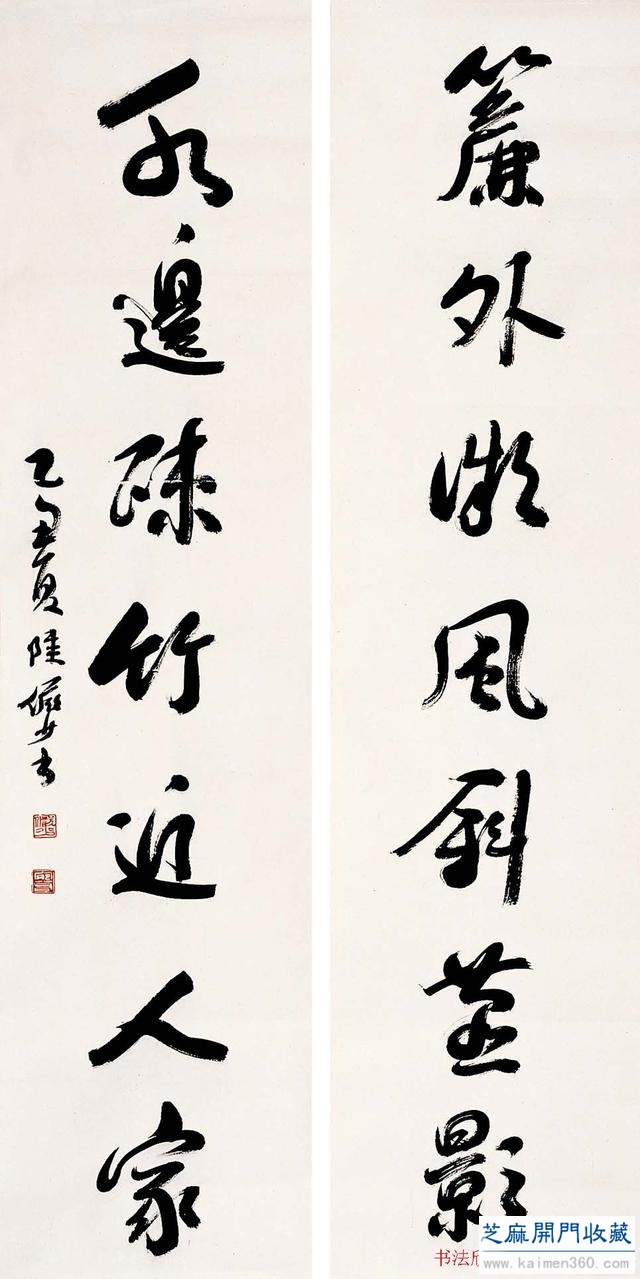 簾外微風斜燕影
水邊疎竹近人家
乙丑夏陸儼少書
芝麻開門收藏
www.kaimen360.com
书法欣